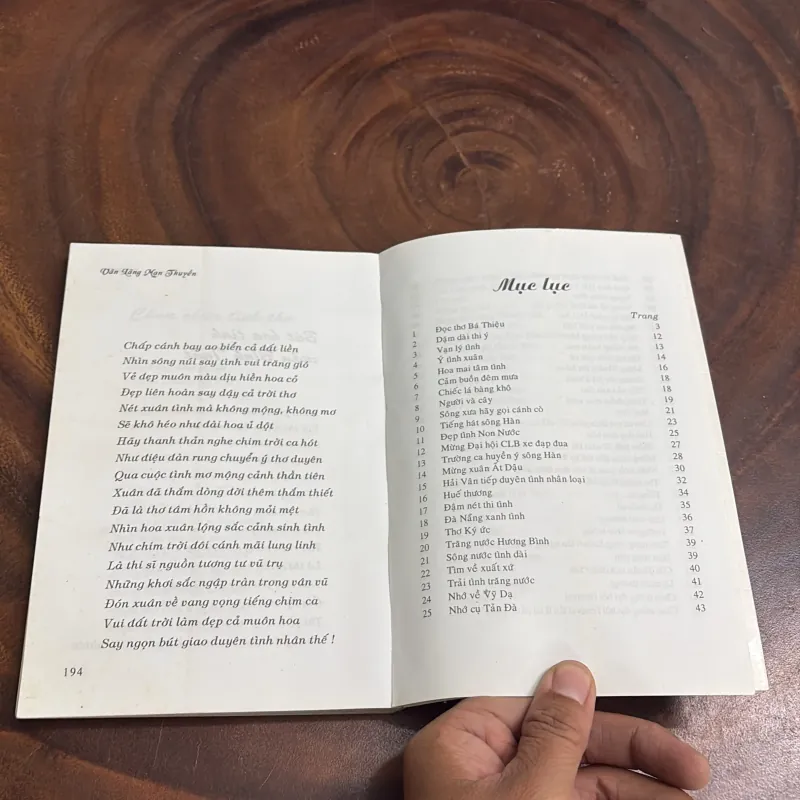 Văn Lãng Mạn Thuyền
Chấp cánh bay ao biển cả đất liền
Nhìn sông núi say tình vui trăng gió
Vẻ đẹp muôn màu dịu hiền hoa cỏ
Đẹp liên hoàn say dậy cả trời thơ
Nét xuân tình mà không mộng, không mơ
Sẽ khô héo như đài hoa ủ dột
Hãy thanh thản nghe chim trời ca hót
Như diệu đàn rung chuyển ý thơ duyên
Qua cuộc tình mơ mộng cảnh thần tiên
Xuân đã thắm dòng đời thêm thắm thiết
Đã là thơ tâm hồn không mỏi mệt
Nhìn hoa xuân lộng sắc cảnh sinh tình
Như chim trời đôi cánh mãi lung linh
Là thi sĩ nguồn tương tư vũ trụ
Những khơi sắc ngập tràn trong vân vũ
Đón xuân về vang vọng tiếng chim ca
Vui đất trời làm đẹp cả muôn hoa
Say ngọn bút giao duyên tình nhân thế !
194
Mục lục
Trang
1 Đọc thơ Bá Thiệu 3
2 Dặm dài thi ý 12
3 Vạn lý tình 13
4 Ý tình xuân 14
5 Hoa mai tâm tình 16
6 Cảm buồn đêm mưa 18
7 Chiếc lá bâng khô 18
8 Người và cây 19
9 Sông xưa hãy gọi cánh cò 21
10 Tiếng hát sông Hàn 23
11 Đẹp tình Non Nước 25
12 Mừng Đại hội CLB xe đạp đua 27
13 Trường ca huyền ý sông Hàn 28
14 Mừng xuân Ất Dậu 30
15 Hải Vân tiếp duyên tình nhân loại 32
16 Huế thương 34
17 Đậm nét thi tình 35
18 Đà Nẵng xanh tình 36
19 Thơ Ký ức 37
20 Trăng nước Hương Bình 39
21 Sông nước tình dài 39
22 Tìm về xuất xứ 40
23 Trải tình trăng nước 41
24 Nhớ về Vỹ Dạ 42
25 Nhớ cụ Tản Đà 43